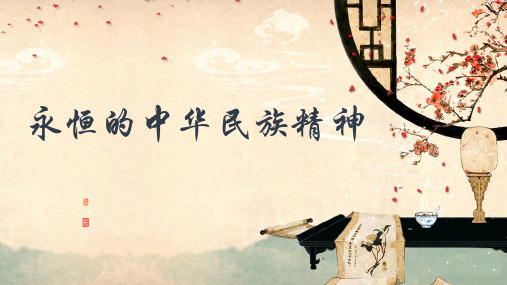 永恒的中华民族精神